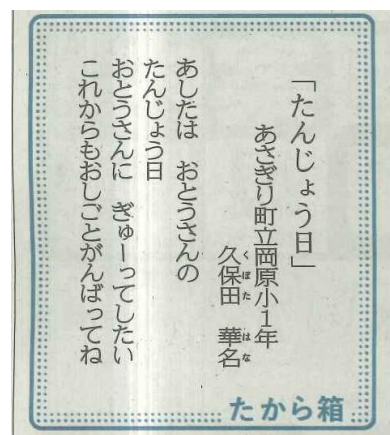 「たんじょう日」
あさぎり町立岡原小1年
久保田　華名
くぼた　はな
あしたは　おとうさんの
たんじょう日
おとうさんに　ぎゅーってしたい
これからもおしごとがんばってね
たから箱